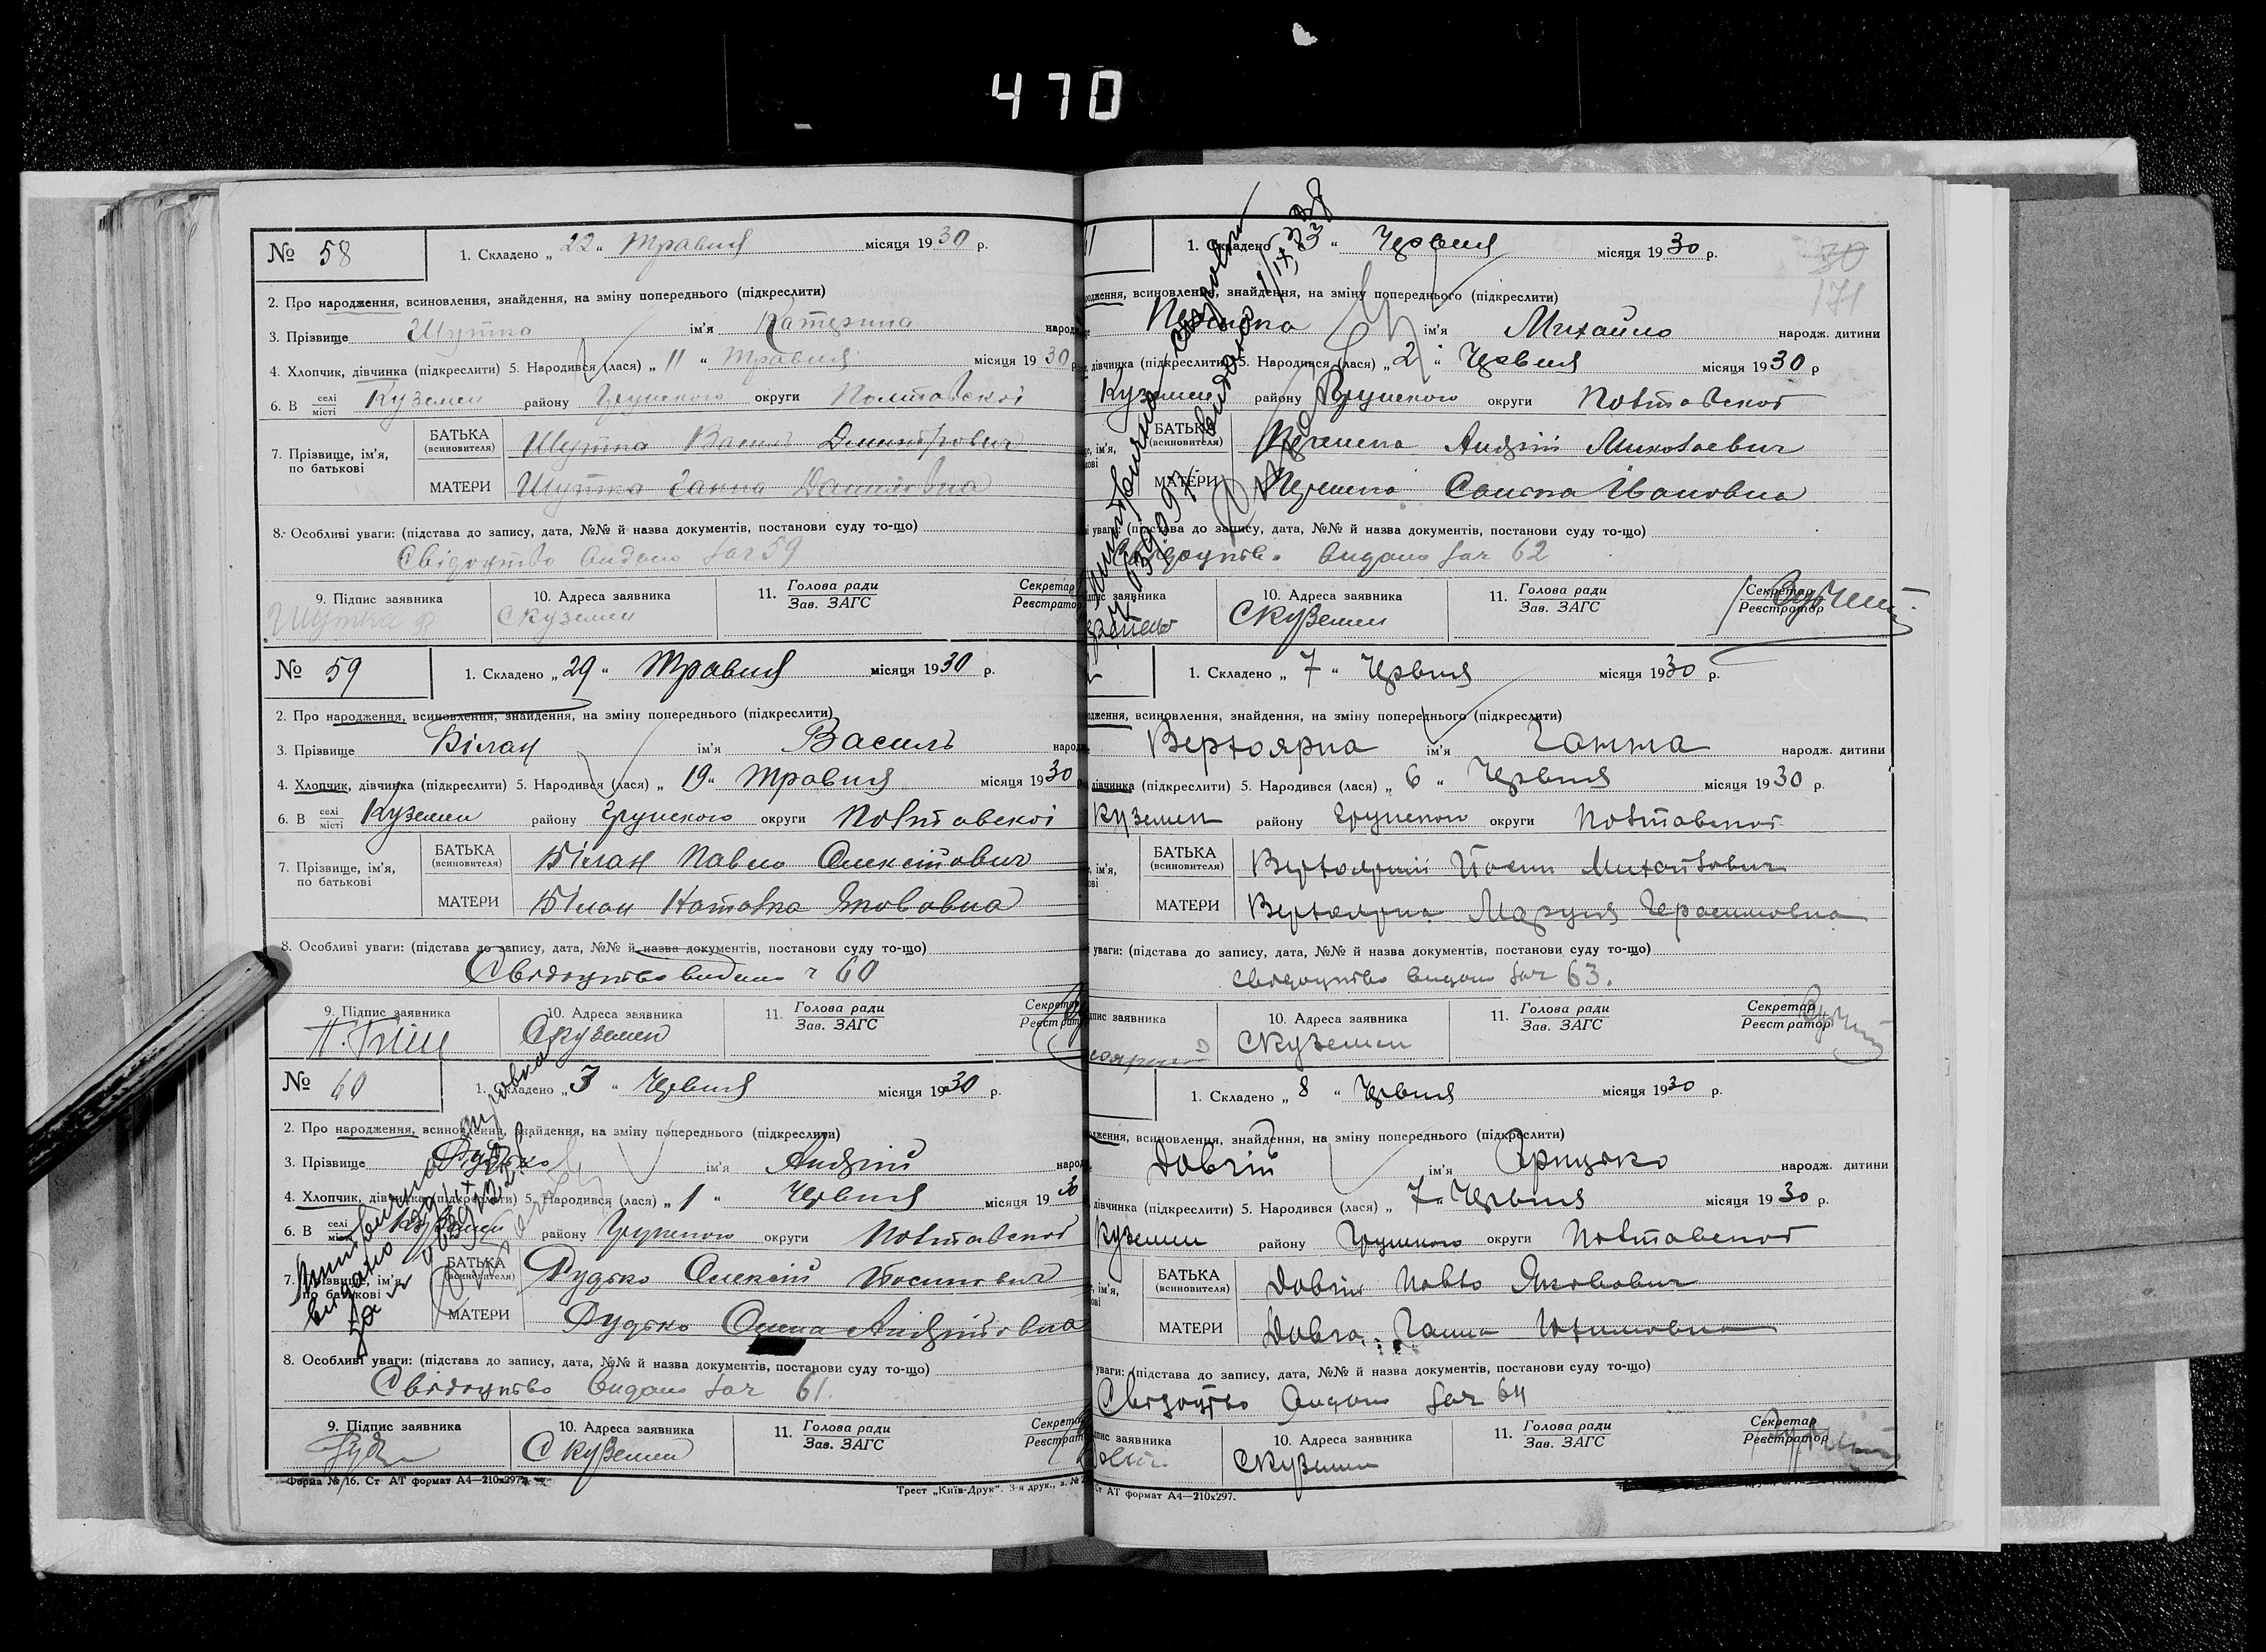 470
№ 58
1. Складено „ 22 “ Травня місяця 1930 р.
2. Про народження, всиновлення, знайдення, на зміну попереднього (підкреслити)
3. Прізвище Шутка ім'я Катерина народ
4. Хлопчик, дівчинка (підкреслити) 5. Народився (лася) „ 11 “ Травня місяця 1930 р
6. В селі місті Куземен району Грунського округи Полтавської
7. Прізвище, ім'я, по батькові
БАТЬКА (всиновителя) Шутка Василь Дмитрович
МАТЕРИ Шутка Ганна Данилівна
8. Особливі уваги: (підстава до запису, дата, №№ й назва документів, постанови суду то-що)
Свідоцтво видано за № 59
9. Підпис заявника 10. Адреса заявника 11. Голова ради Зав. ЗАГС Секретар Реєстратор
Шутка С Куземен
№ 59
1. Складено „ 29 “ Травня місяця 1930 р.
2. Про народження, всиновлення, знайдення, на зміну попереднього (підкреслити)
3. Прізвище Білан ім'я Василь народ
4. Хлопчик, дівчинка (підкреслити) 5. Народився (лася) „ 19 “ Травня місяця 1930
6. В селі місті Куземен району Грунського округи Полтавської
7. Прізвище, ім'я, по батькові
БАТЬКА (всиновителя) Білан Павло Олексійович
МАТЕРИ Білан Наталка Яковівна
8. Особливі уваги: (підстава до запису, дата, №№ й назва документів, постанови суду то-що)
Свідоцтво видано 60
9. Підпис заявника 10. Адреса заявника 11. Голова ради Зав. ЗАГС Секретар Реєстратор
С Куземен
№ 60
1. Складено „ 3 “ Червня місяця 1930 р.
2. Про народження, всиновлення, знайдення, на зміну попереднього (підкреслити)
3. Прізвище Рудько ім'я Андрій народ
4. Хлопчик, дівчинка (підкреслити) 5. Народився (лася) „ 1 “ Червня місяця 1930
6. В селі місті Куземен району Грунського округи Полтавської
7. Прізвище, ім'я, по батькові
БАТЬКА (всиновителя) Рудько Олексій Йосипович
МАТЕРИ Рудько Андріївна
8. Особливі уваги: (підстава до запису, дата, №№ й назва документів, постанови суду то-що)
Свідоцтво видано за № 61.
9. Підпис заявника 10. Адреса заявника 11. Голова ради Зав. ЗАГС Секретар Реєстрат
С Куземен
Форма № 16. Ст АТ формат А4—210х297
Трест „Київ-Друк“. 3-я друк., з. №
1. Складено „ 3 “ Червня місяця 1930 р.
30
171
одження, всиновлення, знайдення, на зміну попереднього (підкреслити)
ім'я Михайло народж. дитини
дівчинка (підкреслити) 5. Народився (лася) „ 2 “ Червня місяця 1930 р
Куземен району Грунського округи Полтавської
БАТЬКА (всиновителя) Андрій Миколаевич
МАТЕРИ Івановна
уваги: (підстава до запису, дата, №№ й назва документів, постанови суду то-що)
Свідоцтво видано за № 62
заявника 10. Адреса заявника 11. Голова ради Зав. ЗАГС Секретар Реєстратор
С Куземен
1. Складено „ 7 “ Червня місяця 1930 р.
одження, всиновлення, знайдення, на зміну попереднього (підкреслити)
ім'я Ганна народж. дитини
дівчинка (підкреслити) 5. Народився (лася) „ 6 “ Червня місяця 1930 р.
Куземен району Грунського округи Полтавської
БАТЬКА (всиновителя) Йосип Михайлович
МАТЕРИ Маруся Герасимовна
уваги: (підстава до запису, дата, №№ й назва документів, постанови суду то-що)
Свідоцтво видано за № 63.
заявника 10. Адреса заявника 11. Голова ради Зав. ЗАГС Секретар Реєстратор
С Куземен
1. Складено „ 8 “ Червня місяця 1930 р.
дження, всиновлення, знайдення, на зміну попереднього (підкреслити)
Довгій ім'я Грицько народж. дитини
дівчинка (підкреслити) 5. Народився (лася) „ 7 “ Червня місяця 1930 р.
Куземен району Грунського округи Полтавської
БАТЬКА (всиновителя) Довгій Павло Якович
МАТЕРИ Довга Ганна Юхимовна
уваги: (підстава до запису, дата, №№ й назва документів, постанови суду то-що)
Свідоцтво видано за № 64
заявника 10. Адреса заявника 11. Голова ради Зав. ЗАГС Секретар Реєстратор
С Куземен
Ст АТ формат А4—210х297.